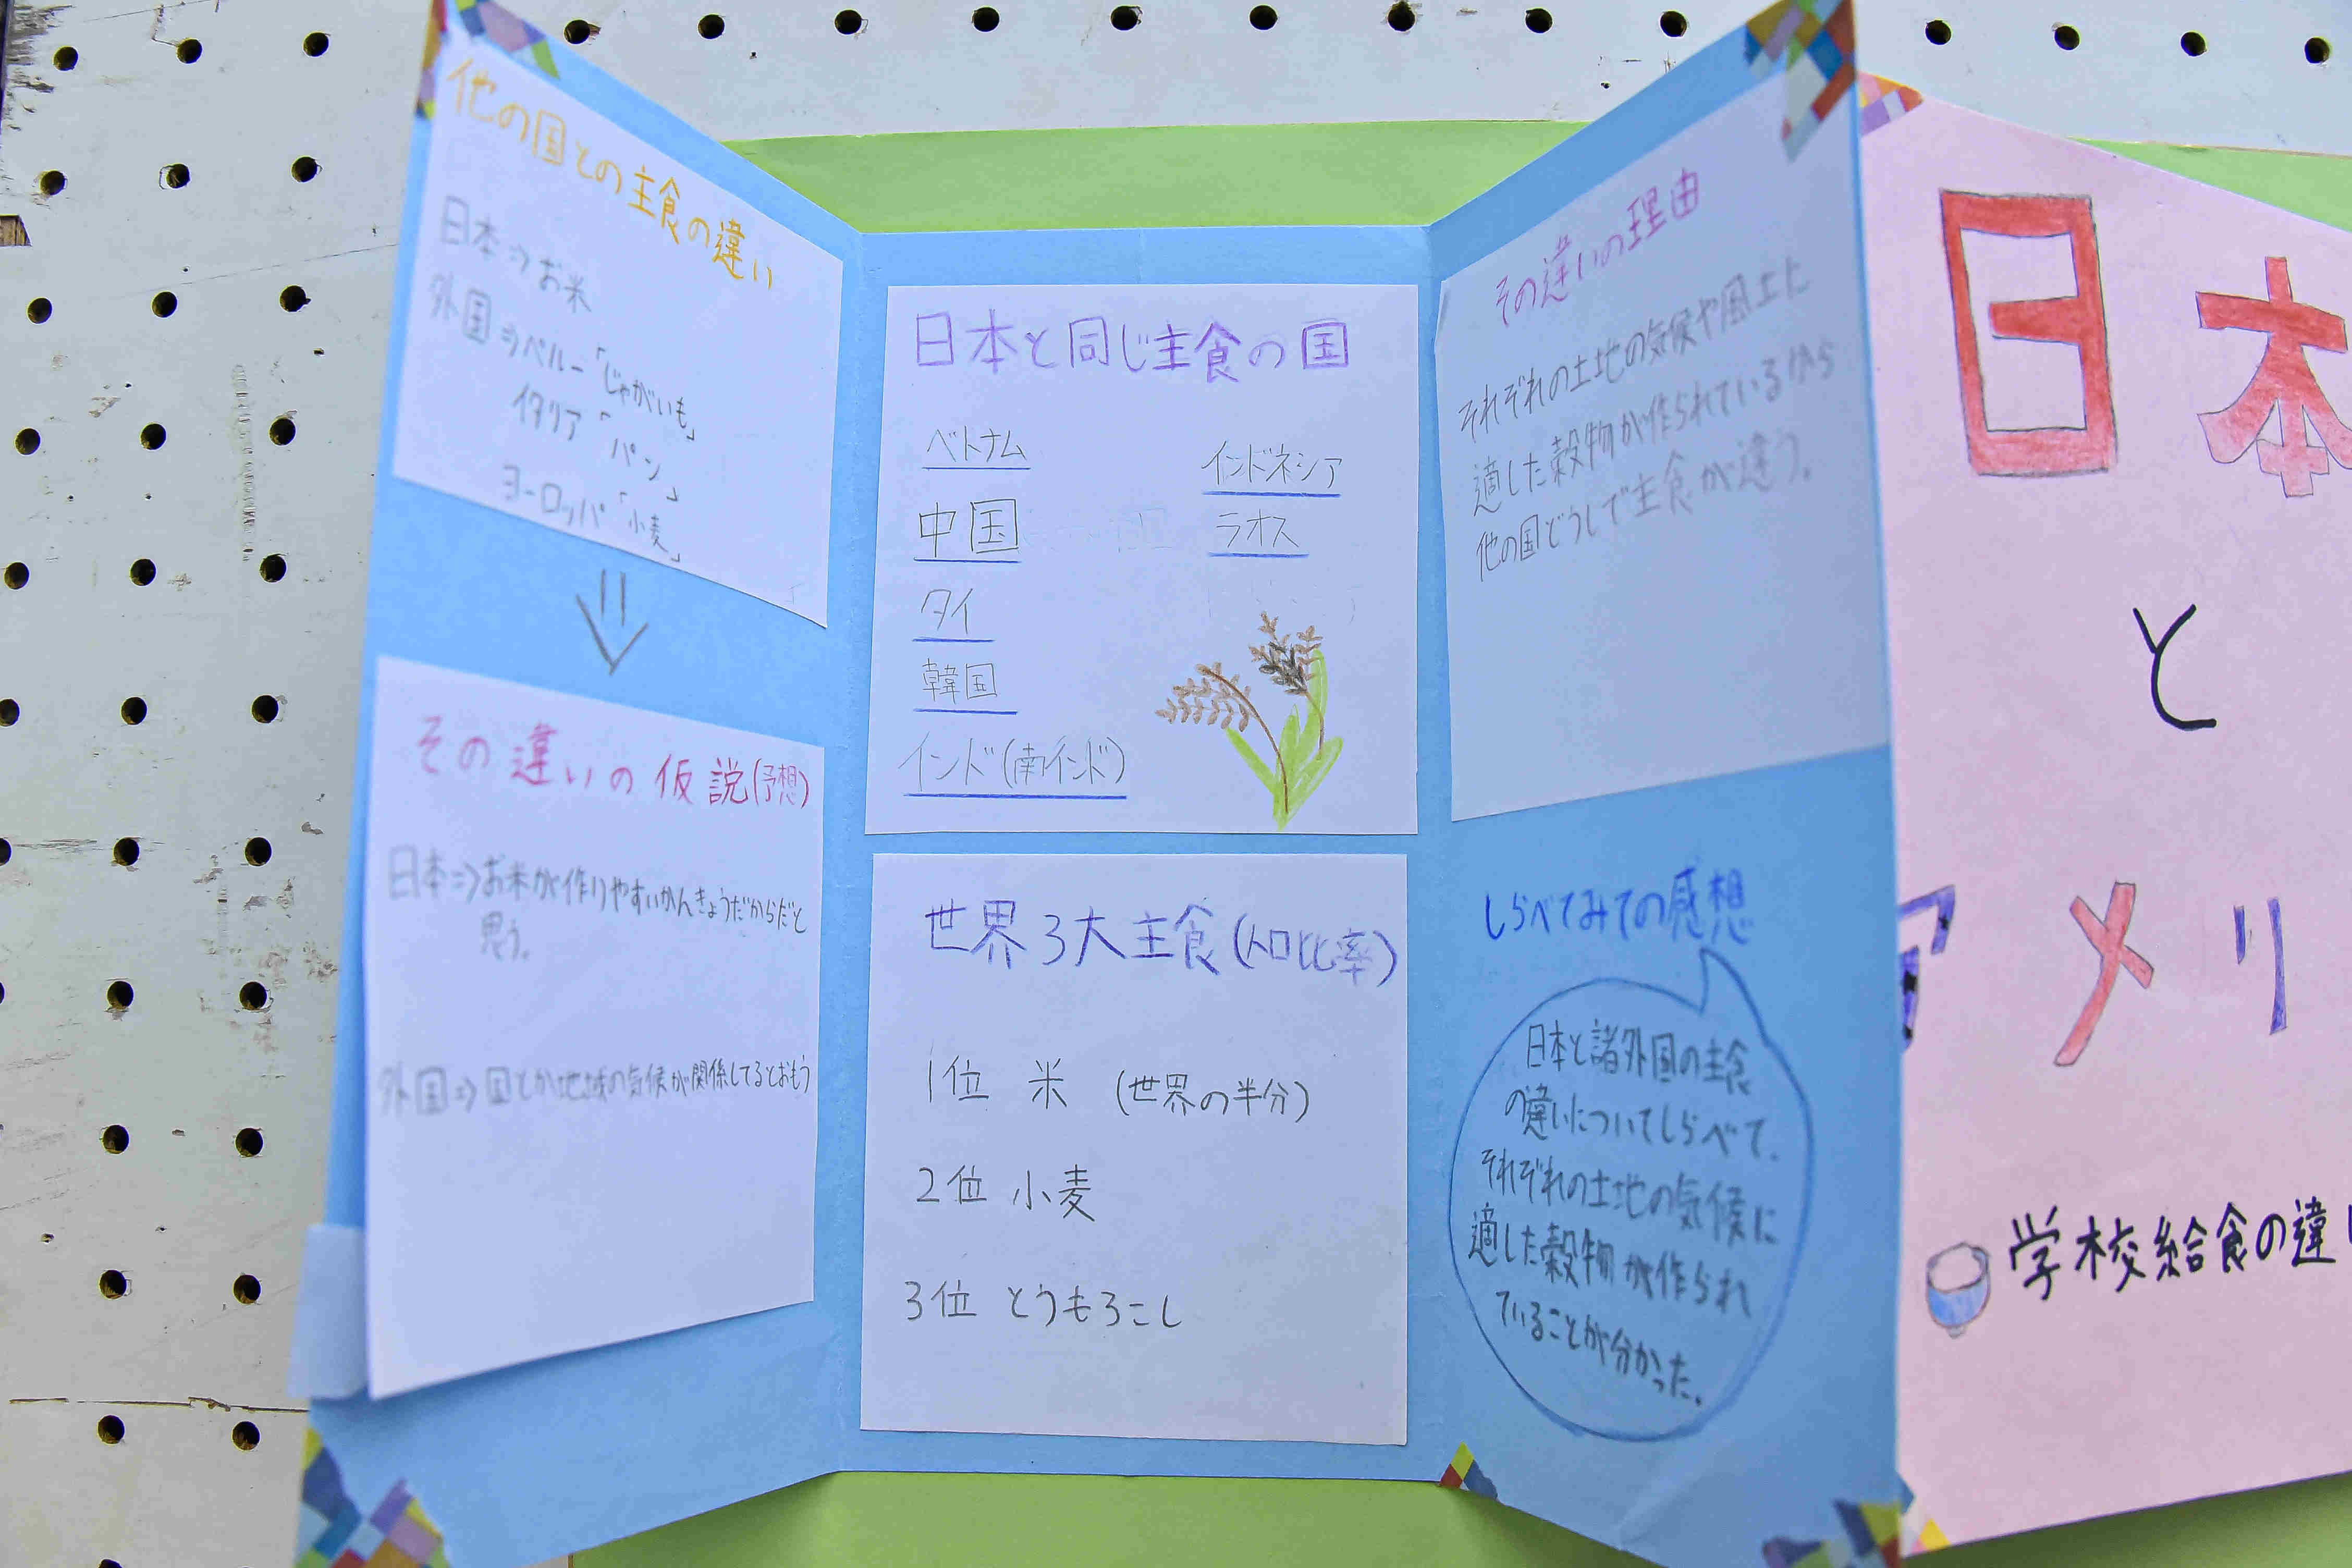 他の国との主食の違い
日本⇒お米
外国⇒ペルー「じゃがいも」
イタリア「パン」
ヨーロッパ「小麦」
その違いの仮説(予想)
日本⇒お米が作りやすいかんきょうだからだと
思う。
外国⇒国とか地域の気候が関係してるとおもう
日本と同じ主食の国
ベトナム
中国
タイ
韓国
インド(南インド)
インドネシア
ラオス
世界3大主食(人口比率)
1位 米 (世界の半分)
2位 小麦
3位 とうもろこし
その違いの理由
それぞれの土地の気候や風土に
適した穀物が作られているから
他の国どうしで主食が違う。
しらべてみての感想
日本と諸外国の主食
の違いについてしらべて、
それぞれの土地の気候に
適した穀物が作られ
ていることが分かった。
日本
と
アメリ
学校給食の違い